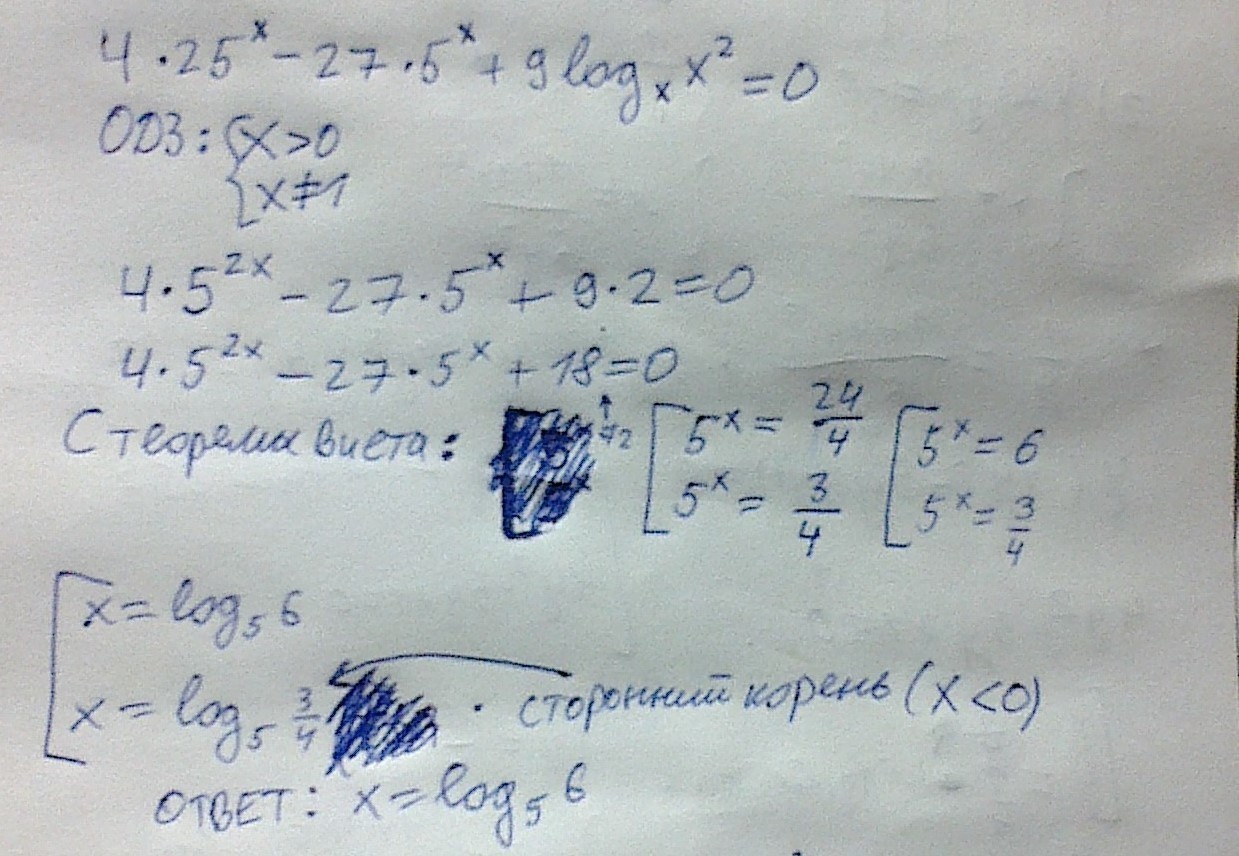 4·25^x − 27·5^x + 9 log_x x^2 = 0
ОДЗ: { x>0
{ x≠1
4·5^{2x} − 27·5^x + 9·2 = 0
4·5^{2x} − 27·5^x + 18 = 0
С теоремы Виета: ↑72 [ 5^x = 24/4 [ 5^x = 6
5^x = 3/4 5^x = 3/4
[ x = log_5 6
x = log_5 3/4 · сторонний корень (x<0)
ОТВЕТ: x = log_5 6